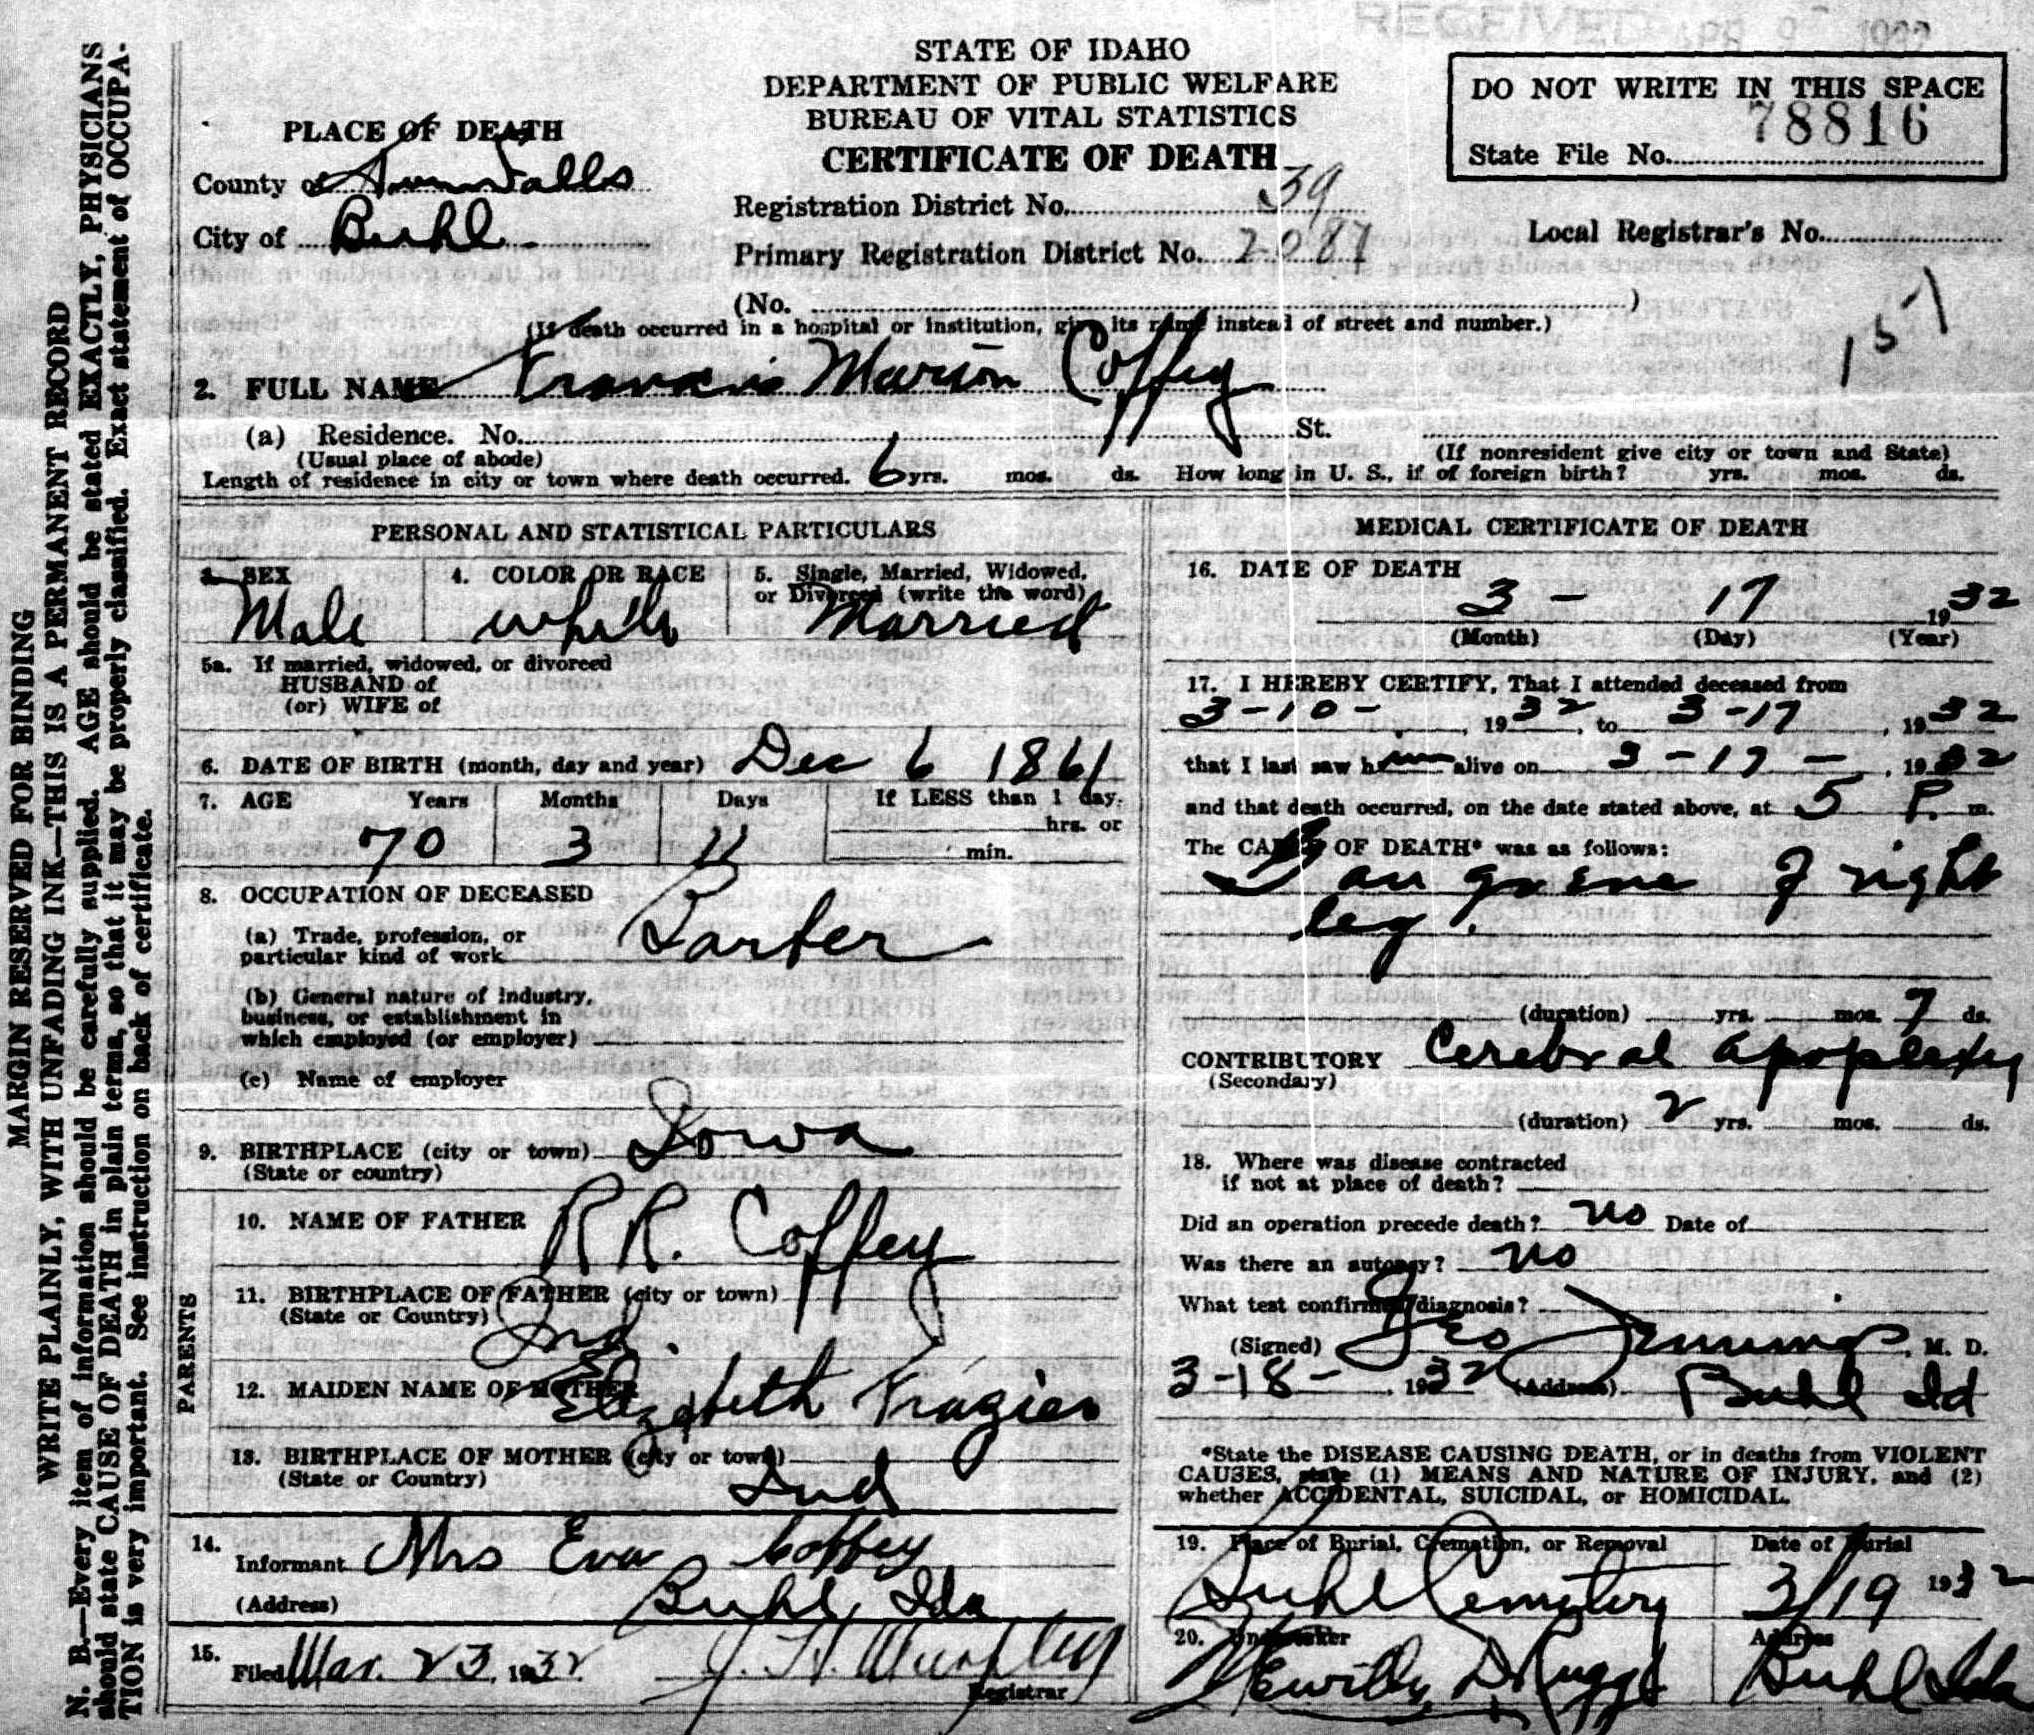 RECEIVED APR
STATE OF IDAHO
DEPARTMENT OF PUBLIC WELFARE
BUREAU OF VITAL STATISTICS
CERTIFICATE OF DEATH
DO NOT WRITE IN THIS SPACE
State File No. 78816
PLACE OF DEATH
County of Twin Falls
City of Buhl
Registration District No. 39
Primary Registration District No. 2087
Local Registrar's No.
(No. )
(If death occurred in a hospital or institution, give its name instead of street and number.)
157
2. FULL NAME Francis Marion Coffey
(a) Residence. No. St.
(Usual place of abode) (If nonresident give city or town and State)
Length of residence in city or town where death occurred. 6 yrs. mos. ds. How long in U. S., if of foreign birth? yrs. mos. ds.
PERSONAL AND STATISTICAL PARTICULARS
3. SEX 4. COLOR OR RACE 5. Single, Married, Widowed,
or Divorced (write the word)
Male White Married
5a. If married, widowed, or divorced
HUSBAND of
(or) WIFE of
6. DATE OF BIRTH (month, day and year) Dec 6 1861
7. AGE Years Months Days If LESS than 1 day.
hrs. or
70 3 11 min.
8. OCCUPATION OF DECEASED
(a) Trade, profession, or
particular kind of work Barber
(b) General nature of industry,
business, or establishment in
which employed (or employer)
(c) Name of employer
9. BIRTHPLACE (city or town) Iowa
(State or country)
PARENTS
10. NAME OF FATHER R R. Coffey
11. BIRTHPLACE OF FATHER (city or town)
(State or Country) Ind.
12. MAIDEN NAME OF MOTHER Elizabeth Frazier
13. BIRTHPLACE OF MOTHER (city or town)
(State or Country) Ind
14.
Informant Mrs Eva Coffey
(Address) Buhl, Ida
15.
Filed Mar. 23, 1932 J. H. Murphy
Registrar
MEDICAL CERTIFICATE OF DEATH
16. DATE OF DEATH
3 - 17 1932
(Month) (Day) (Year)
17. I HEREBY CERTIFY, That I attended deceased from
3-10-, 1932 to 3-17, 1932
that I last saw him alive on 3-17-, 1932
and that death occurred, on the date stated above, at 5 P. m.
The CAUSE OF DEATH* was as follows:
Gangrene of right
leg.
(duration) yrs. mos. 7 ds.
CONTRIBUTORY Cerebral apoplexy
(Secondary)
(duration) 2 yrs. mos. ds.
18. Where was disease contracted
if not at place of death?
Did an operation precede death? no Date of
Was there an autopsy? no
What test confirmed diagnosis?
(Signed) Geo Jennings, M. D.
3-18-, 1932 (Address) Buhl Id
*State the DISEASE CAUSING DEATH, or in deaths from VIOLENT
CAUSES, state (1) MEANS AND NATURE OF INJURY, and (2)
whether ACCIDENTAL, SUICIDAL, or HOMICIDAL.
19. Place of Burial, Cremation, or Removal Date of Burial
Buhl Cemetery 3/19 1932
20. Undertaker Address
Buhl Ida
MARGIN RESERVED FOR BINDING
WRITE PLAINLY, WITH UNFADING INK—THIS IS A PERMANENT RECORD
N. B.—Every item of information should be carefully supplied. AGE should be stated EXACTLY, PHYSICIANS
should state CAUSE OF DEATH in plain terms, so that it may be properly classified. Exact statement of OCCUPA-
TION is very important. See instruction on back of certificate.